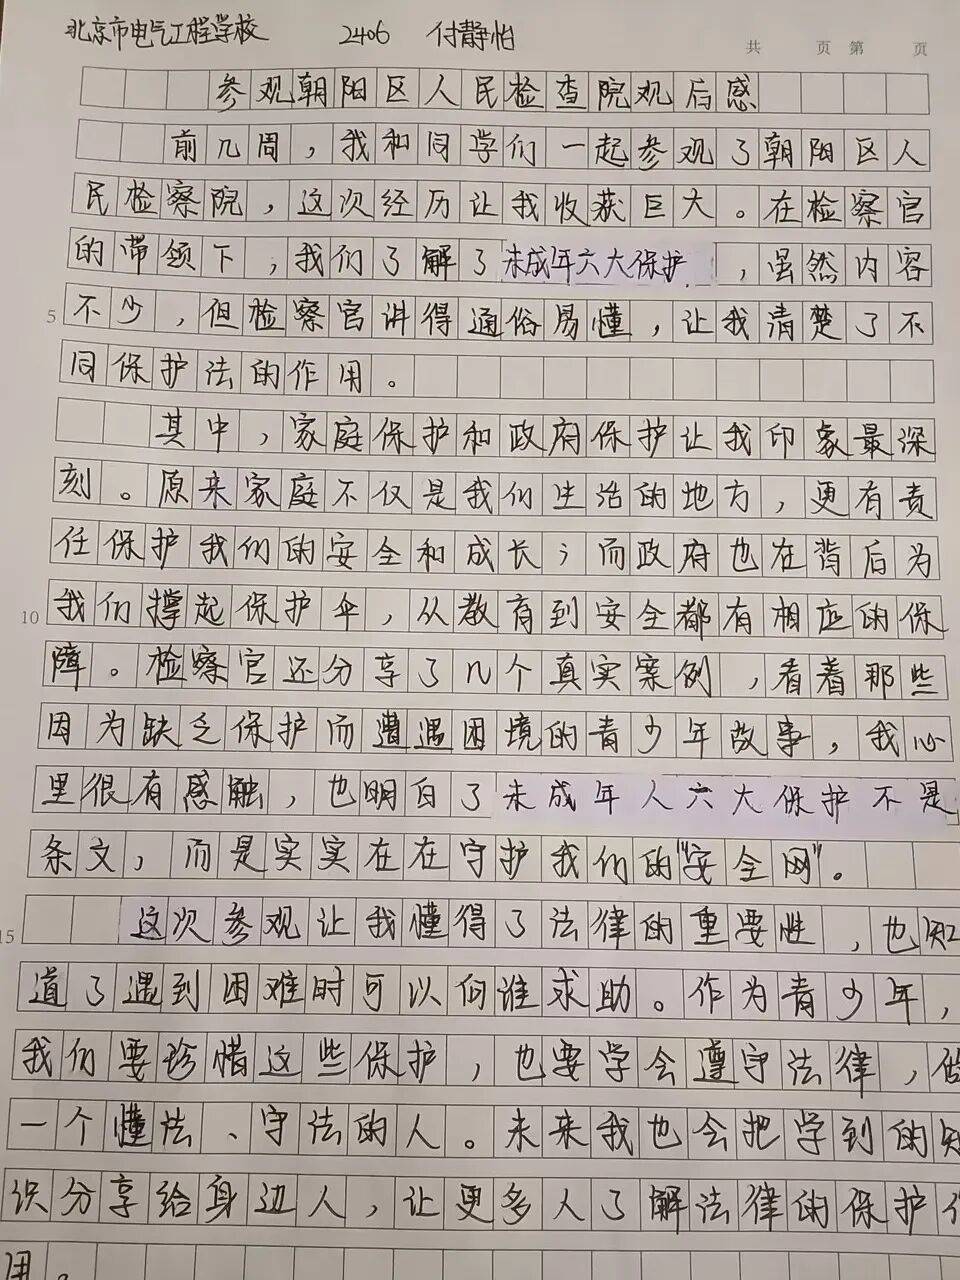 北京市电气工程学校 2406 付静怡
共 页 第 页
参观朝阳区人民检查院观后感
前几周，我和同学们一起参观了朝阳区人
民检察院，这次经历让我收获巨大。在检察官
的带领下，我们了解了未成年六大保护，虽然内容
5 不少，但检察官讲得通俗易懂，让我清楚了不
同保护法的作用。
其中，家庭保护和政府保护让我印象最深
刻。原来家庭不仅是我们生活的地方，更有责
任保护我们的安全和成长；而政府也在背后为
10 我们撑起保护伞，从教育到安全都有相应的保
障。检察官还分享了几个真实案例，看着那些
因为缺乏保护而遭遇困境的青少年故事，我心
里很有感触，也明白了未成年人六大保护不是
条文，而是实实在在守护我们的"安全网"。
15 这次参观让我懂得了法律的重要性，也知
道了遇到困难时可以向谁求助。作为青少年，
我们要珍惜这些保护，也要学会遵守法律，做
一个懂法、守法的人。未来我也会把学到的知
识分享给身边人，让更多人了解法律的保护作
用。